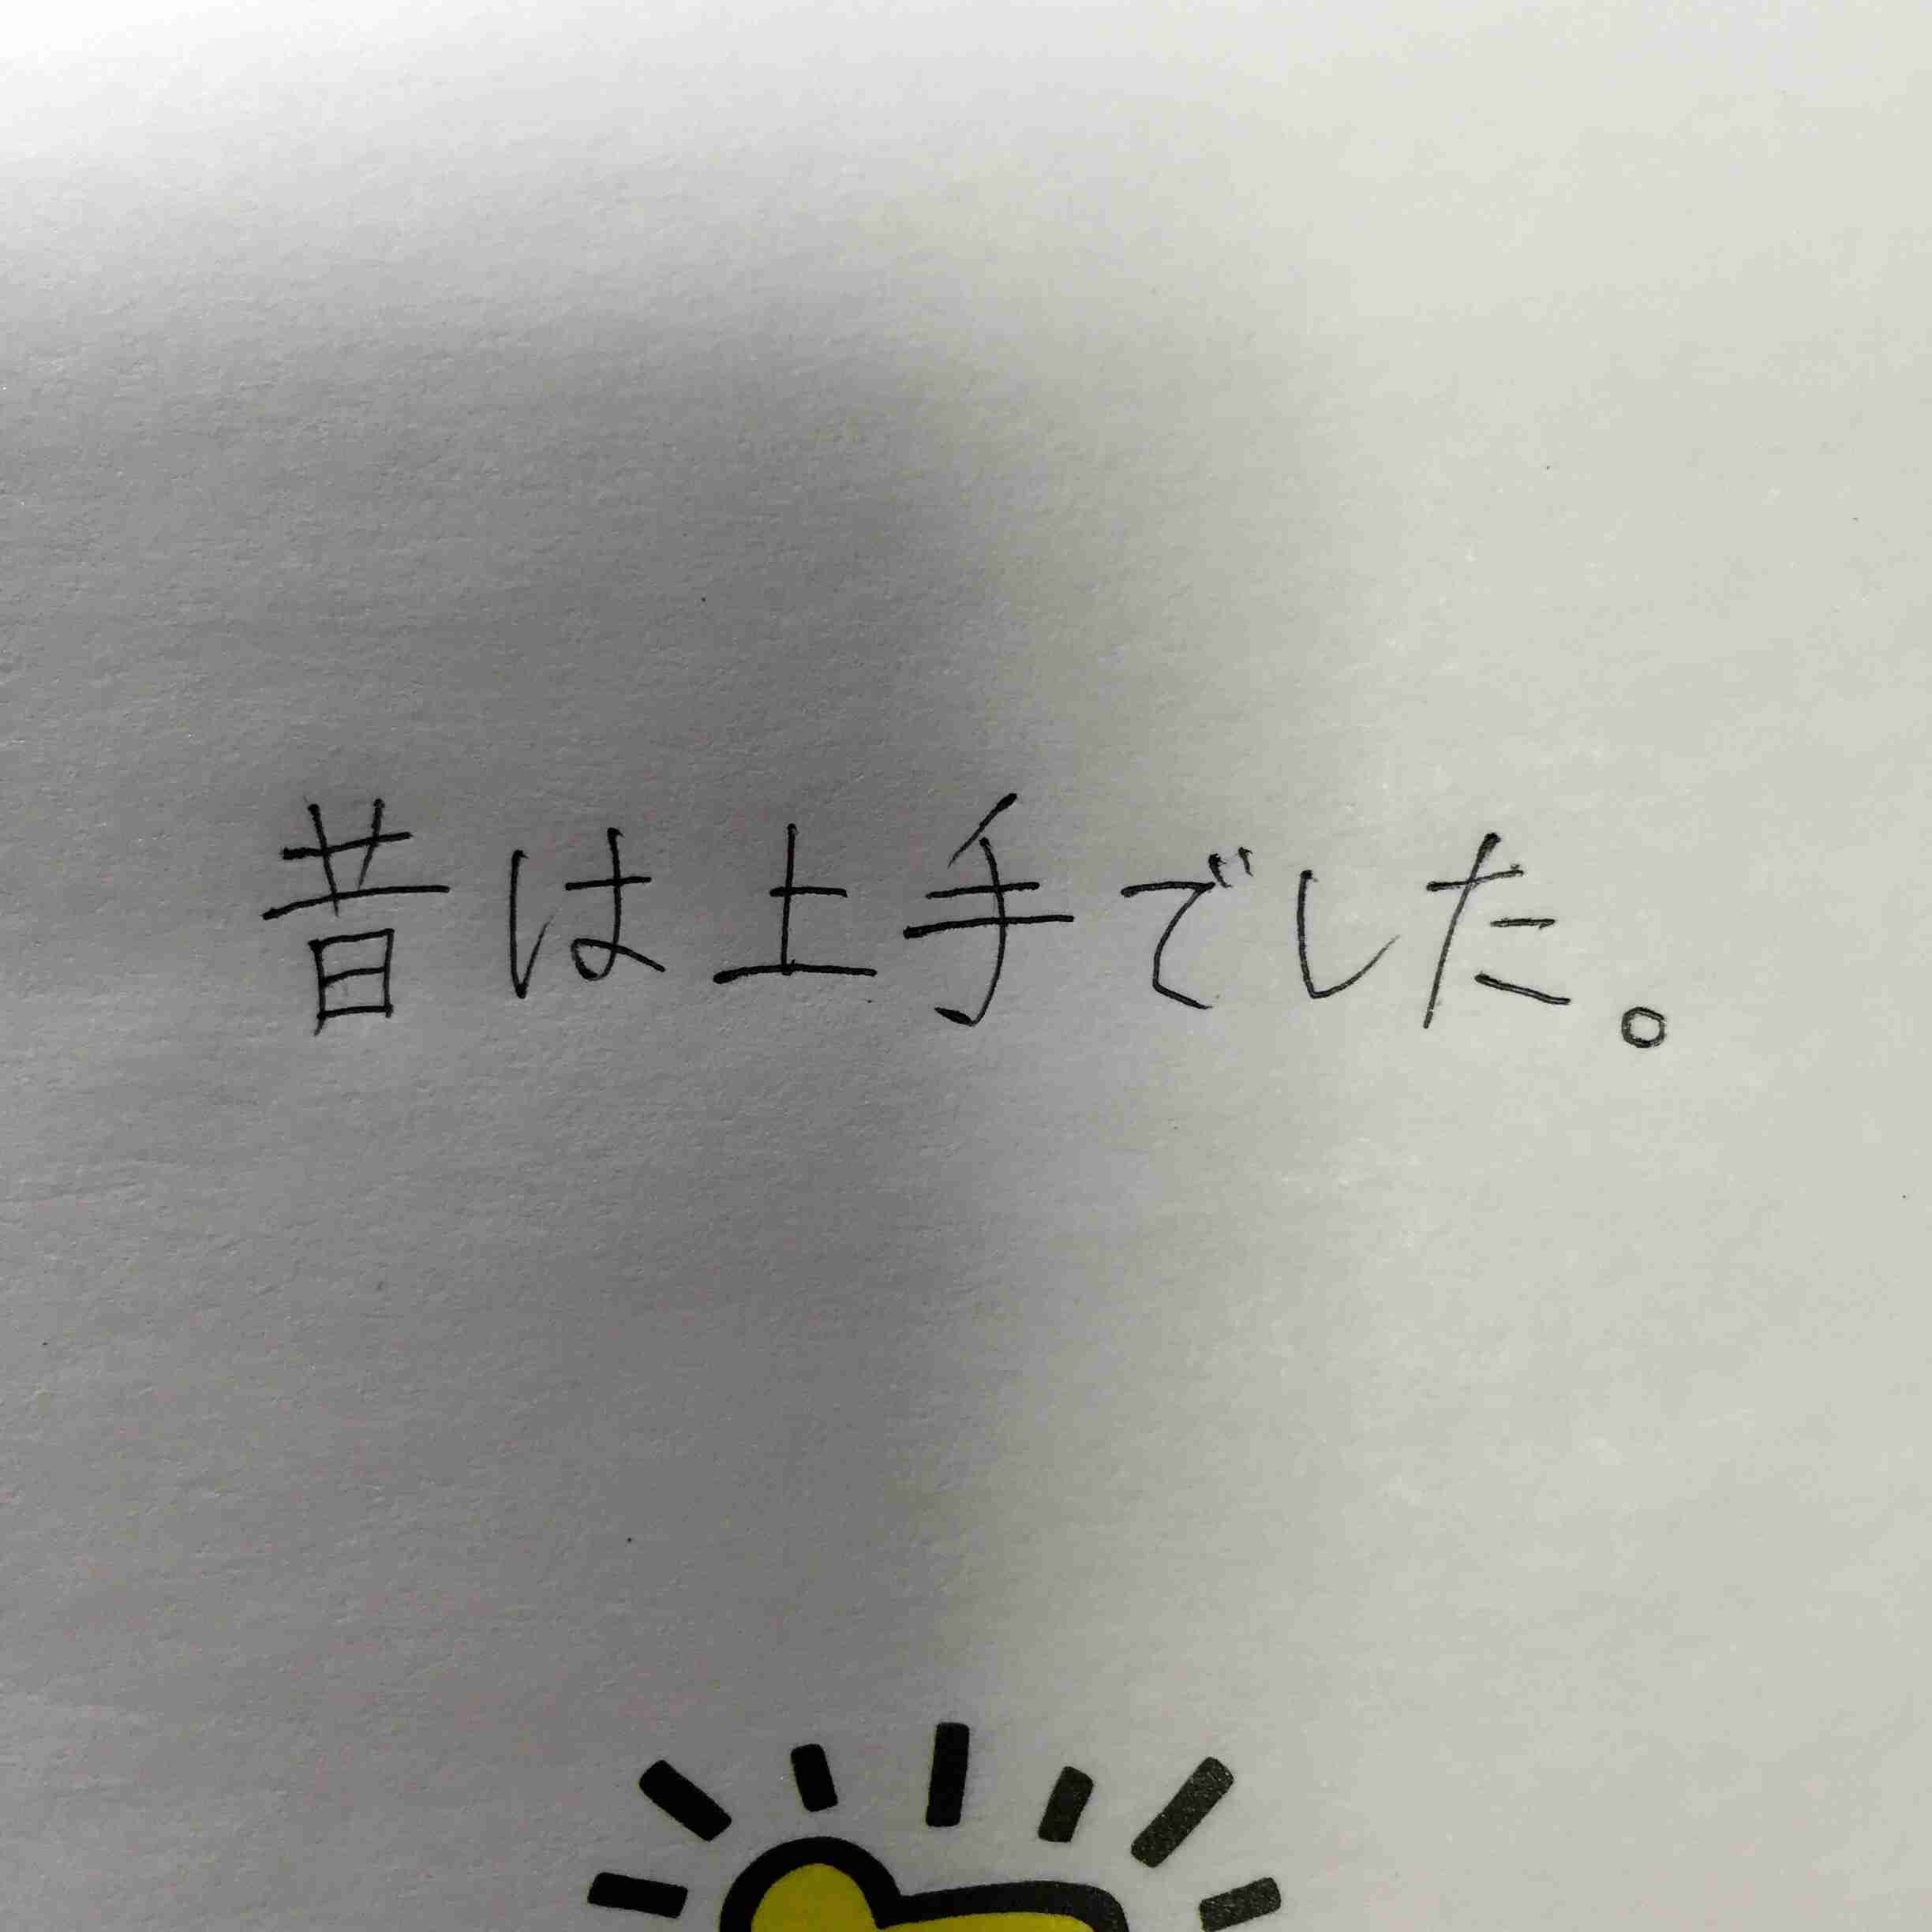 昔は上手でした。